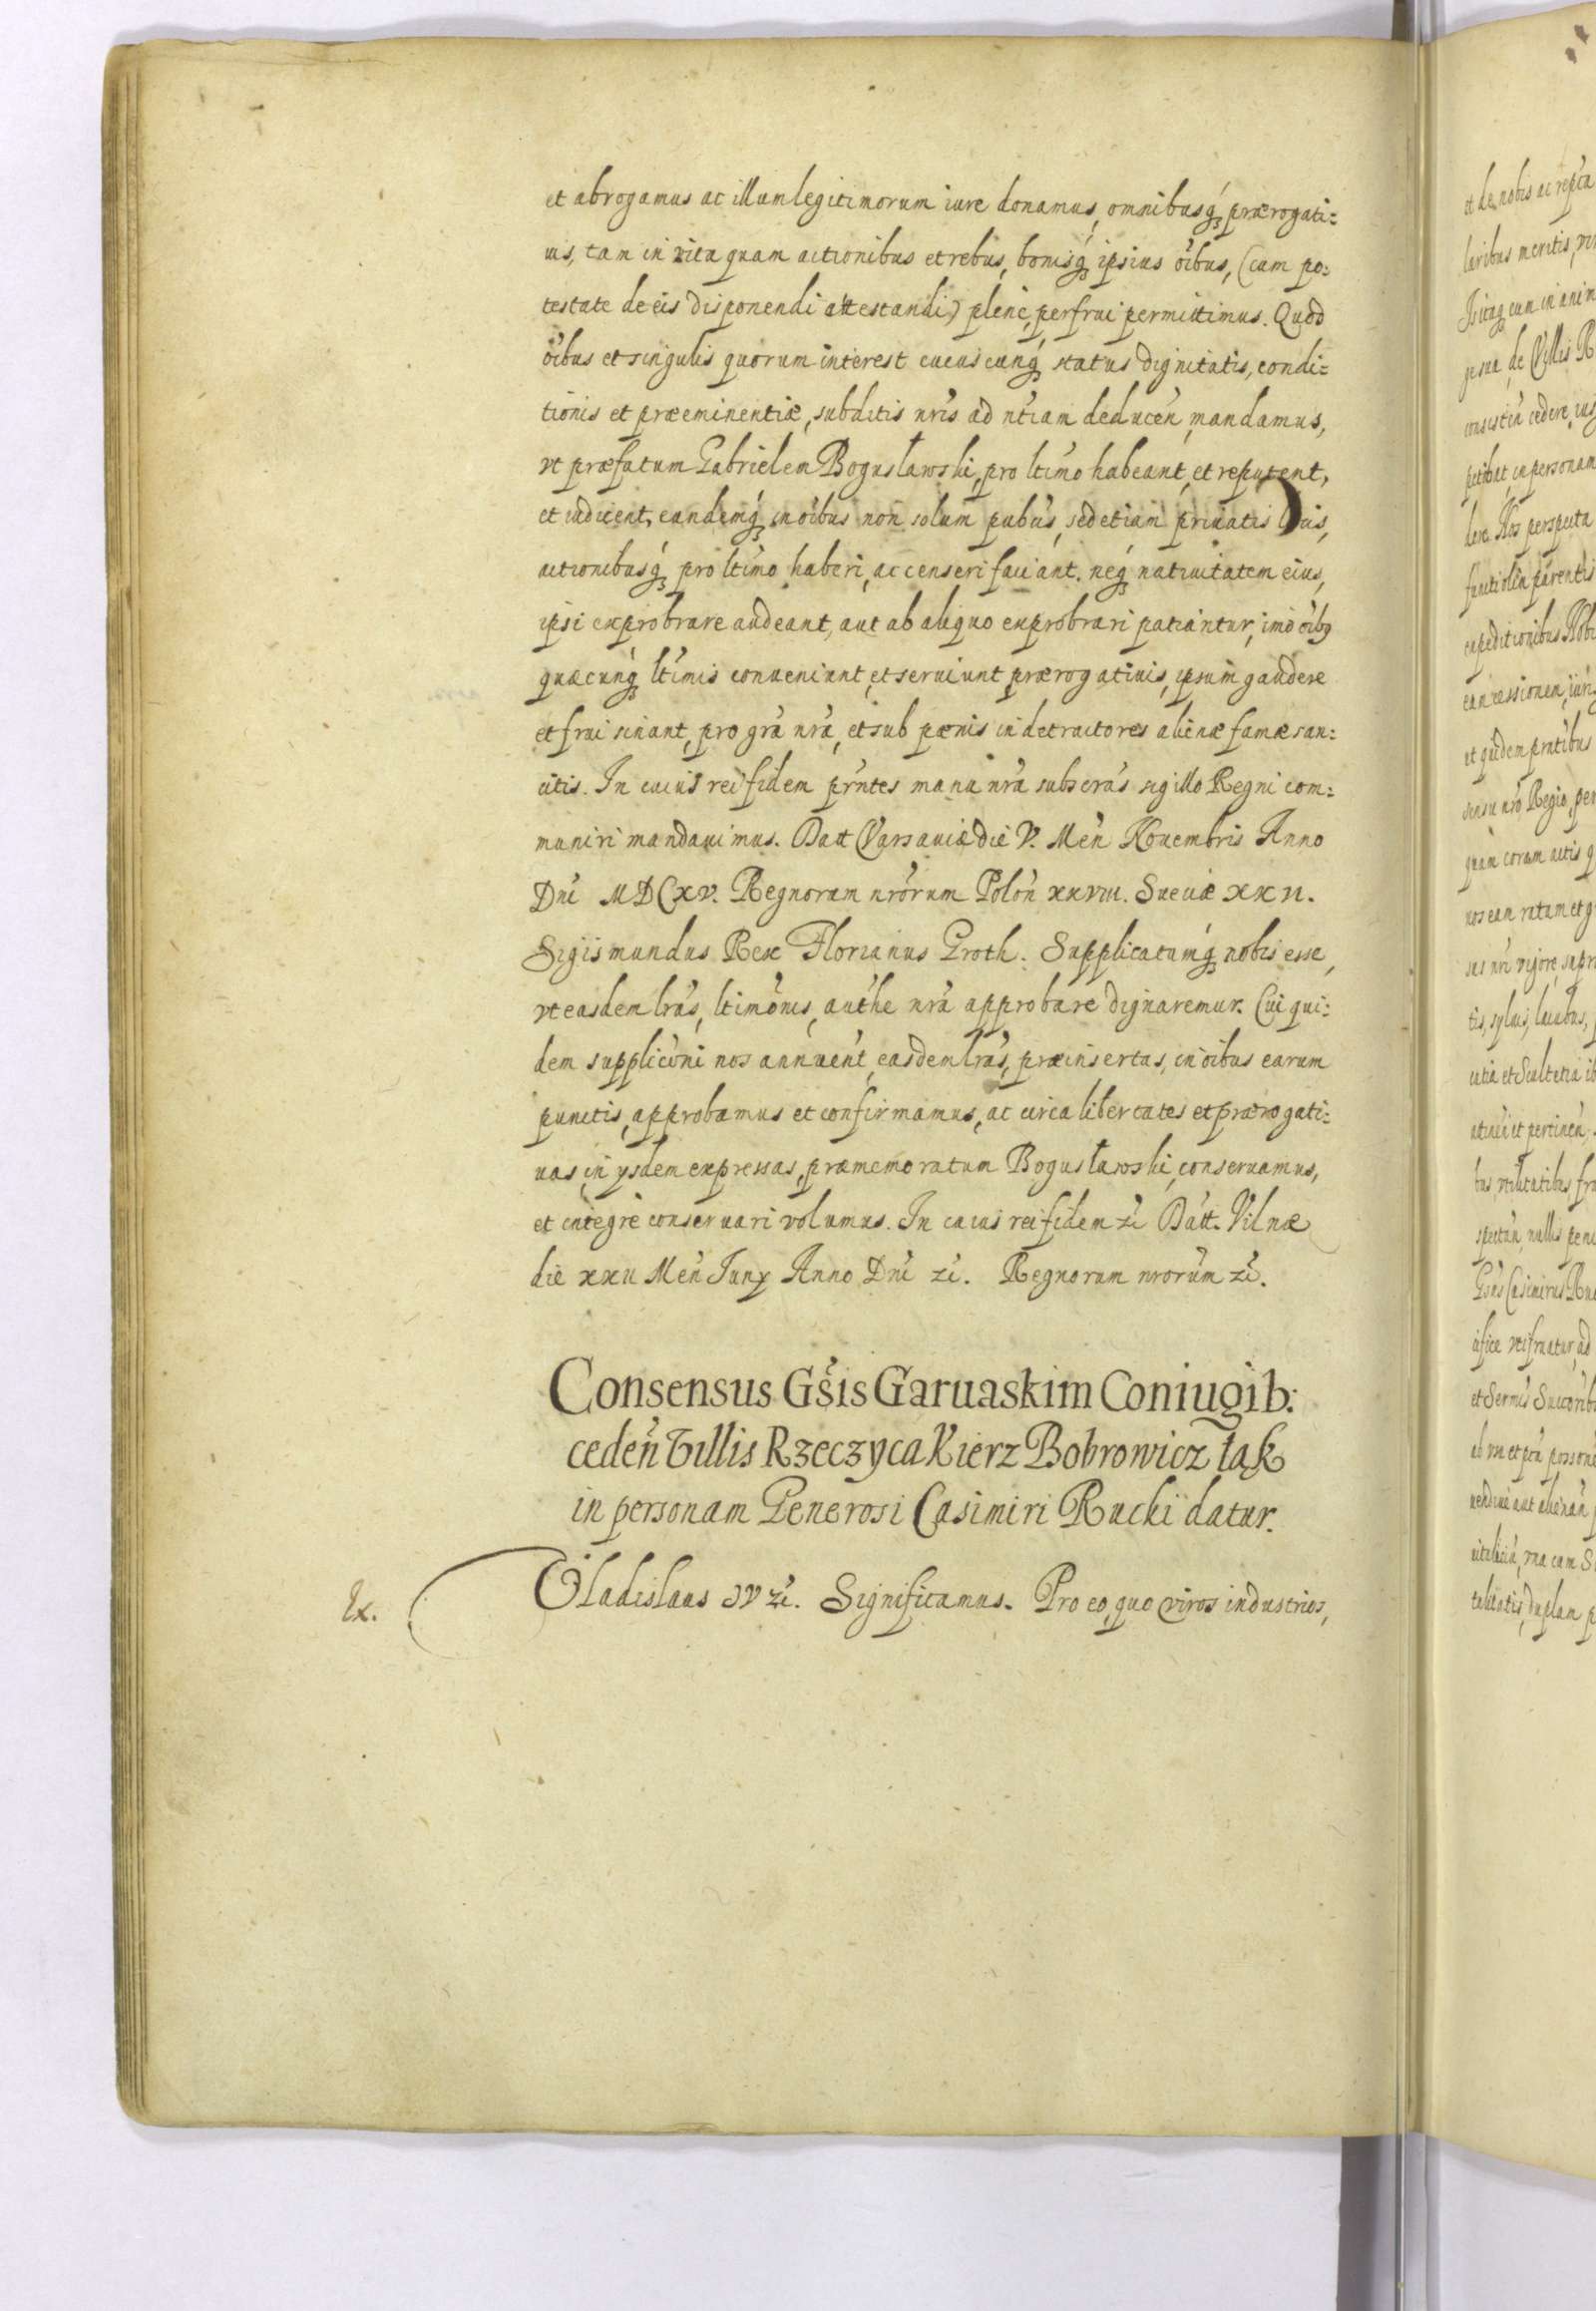 et abrogamus ac illum legitimorum iure donamus, omnibusq́ȝ prærogati=
uis, tam in vita quam actionibus et rebus, bonisq́ȝ ipsius oĩbus, (cum po=
testate de eis disponendi ac testandi) plenè, perfrui permittimus. Quod
oĩbus et singulis quorum interest cuiuscunq́ȝ status dignitatis, condi=
tionis et præeminentiæ, subditis nr̃is ad nt̃iam deducen̉, mandamus,
vt præfatum Gabrielem Bogusławski, pro lt̃imo habeant, et reputent,
et iudicent, eundemq́ȝ in oĩbus non solum pub̃cis, sed etiam priuatis
actionibusq́ȝ pro lt̃imo haberi, ac censeri faciant. neq́ȝ natiuitatem eius,
ipsi exprobrare audeant, aut ab aliquo exprobrari patiantur, imò oĩbȝ
quæcunq́ȝ lt̃imis conueniunt, et seruiunt prærogatiuis, ipsum gaudere
et frui sinant, pro gr̃a nr̃a, et sub pœnis in detractores alienæ famæ san=
citis. In cuius rei fidem pr̃ntes manu nr̃a subscr̃as sigillo Regni com=
muniri mandauimus. Datt Varsauiæ die V. Men̉ Nouembris Anno
Dñi MDCXV. Regnorum nr̃orum Polon̉ xxviii. Sueciæ xxii.
Sigismundus Rex Florianus Groth. Supplicatumq́ȝ nobis esse,
vt easdem lr̃as, lt̃imõnis, auth̃e nr̃a approbare dignaremur. Cui qui=
dem supplic̃oni nos annuent̃, easdem lr̃as, præinsertas, in oĩbus earum
punctis, approbamus et confirmamus, ac circa libertates et prærogati=
uas, in ysdem expressas, præmemoratum Bogusławski, conseruamus,
et integrè conseruari volumus. In cuius rei fidem zc̃ Datt. Vilnæ
die xxii Men̉ Iunij Anno Dñi zc̃. Regnorum nrorum zc̃.
Consensus Gs̃is Garuaskim Coniugib:
ceden̉ Villis Rzeczyca Kierz Bobrowicz łąk
in personam Generosi Casimiri Rucki datur.
Ex.
Vladislaus IV zc̃. Significamus. Pro eo, quo viros industrios,
et de nobis ac
laribus meritis,
Isitaq́ȝ cum in
de Villis R
cedere,
in personam
dere. Nos perspecta
parentis
expeditionibus
et quidem
nr̃o Regio, per
quam coram actis
nos eam ratam et
vigore,
et pertinen̉
nullis
Casimirus
ad
duplam